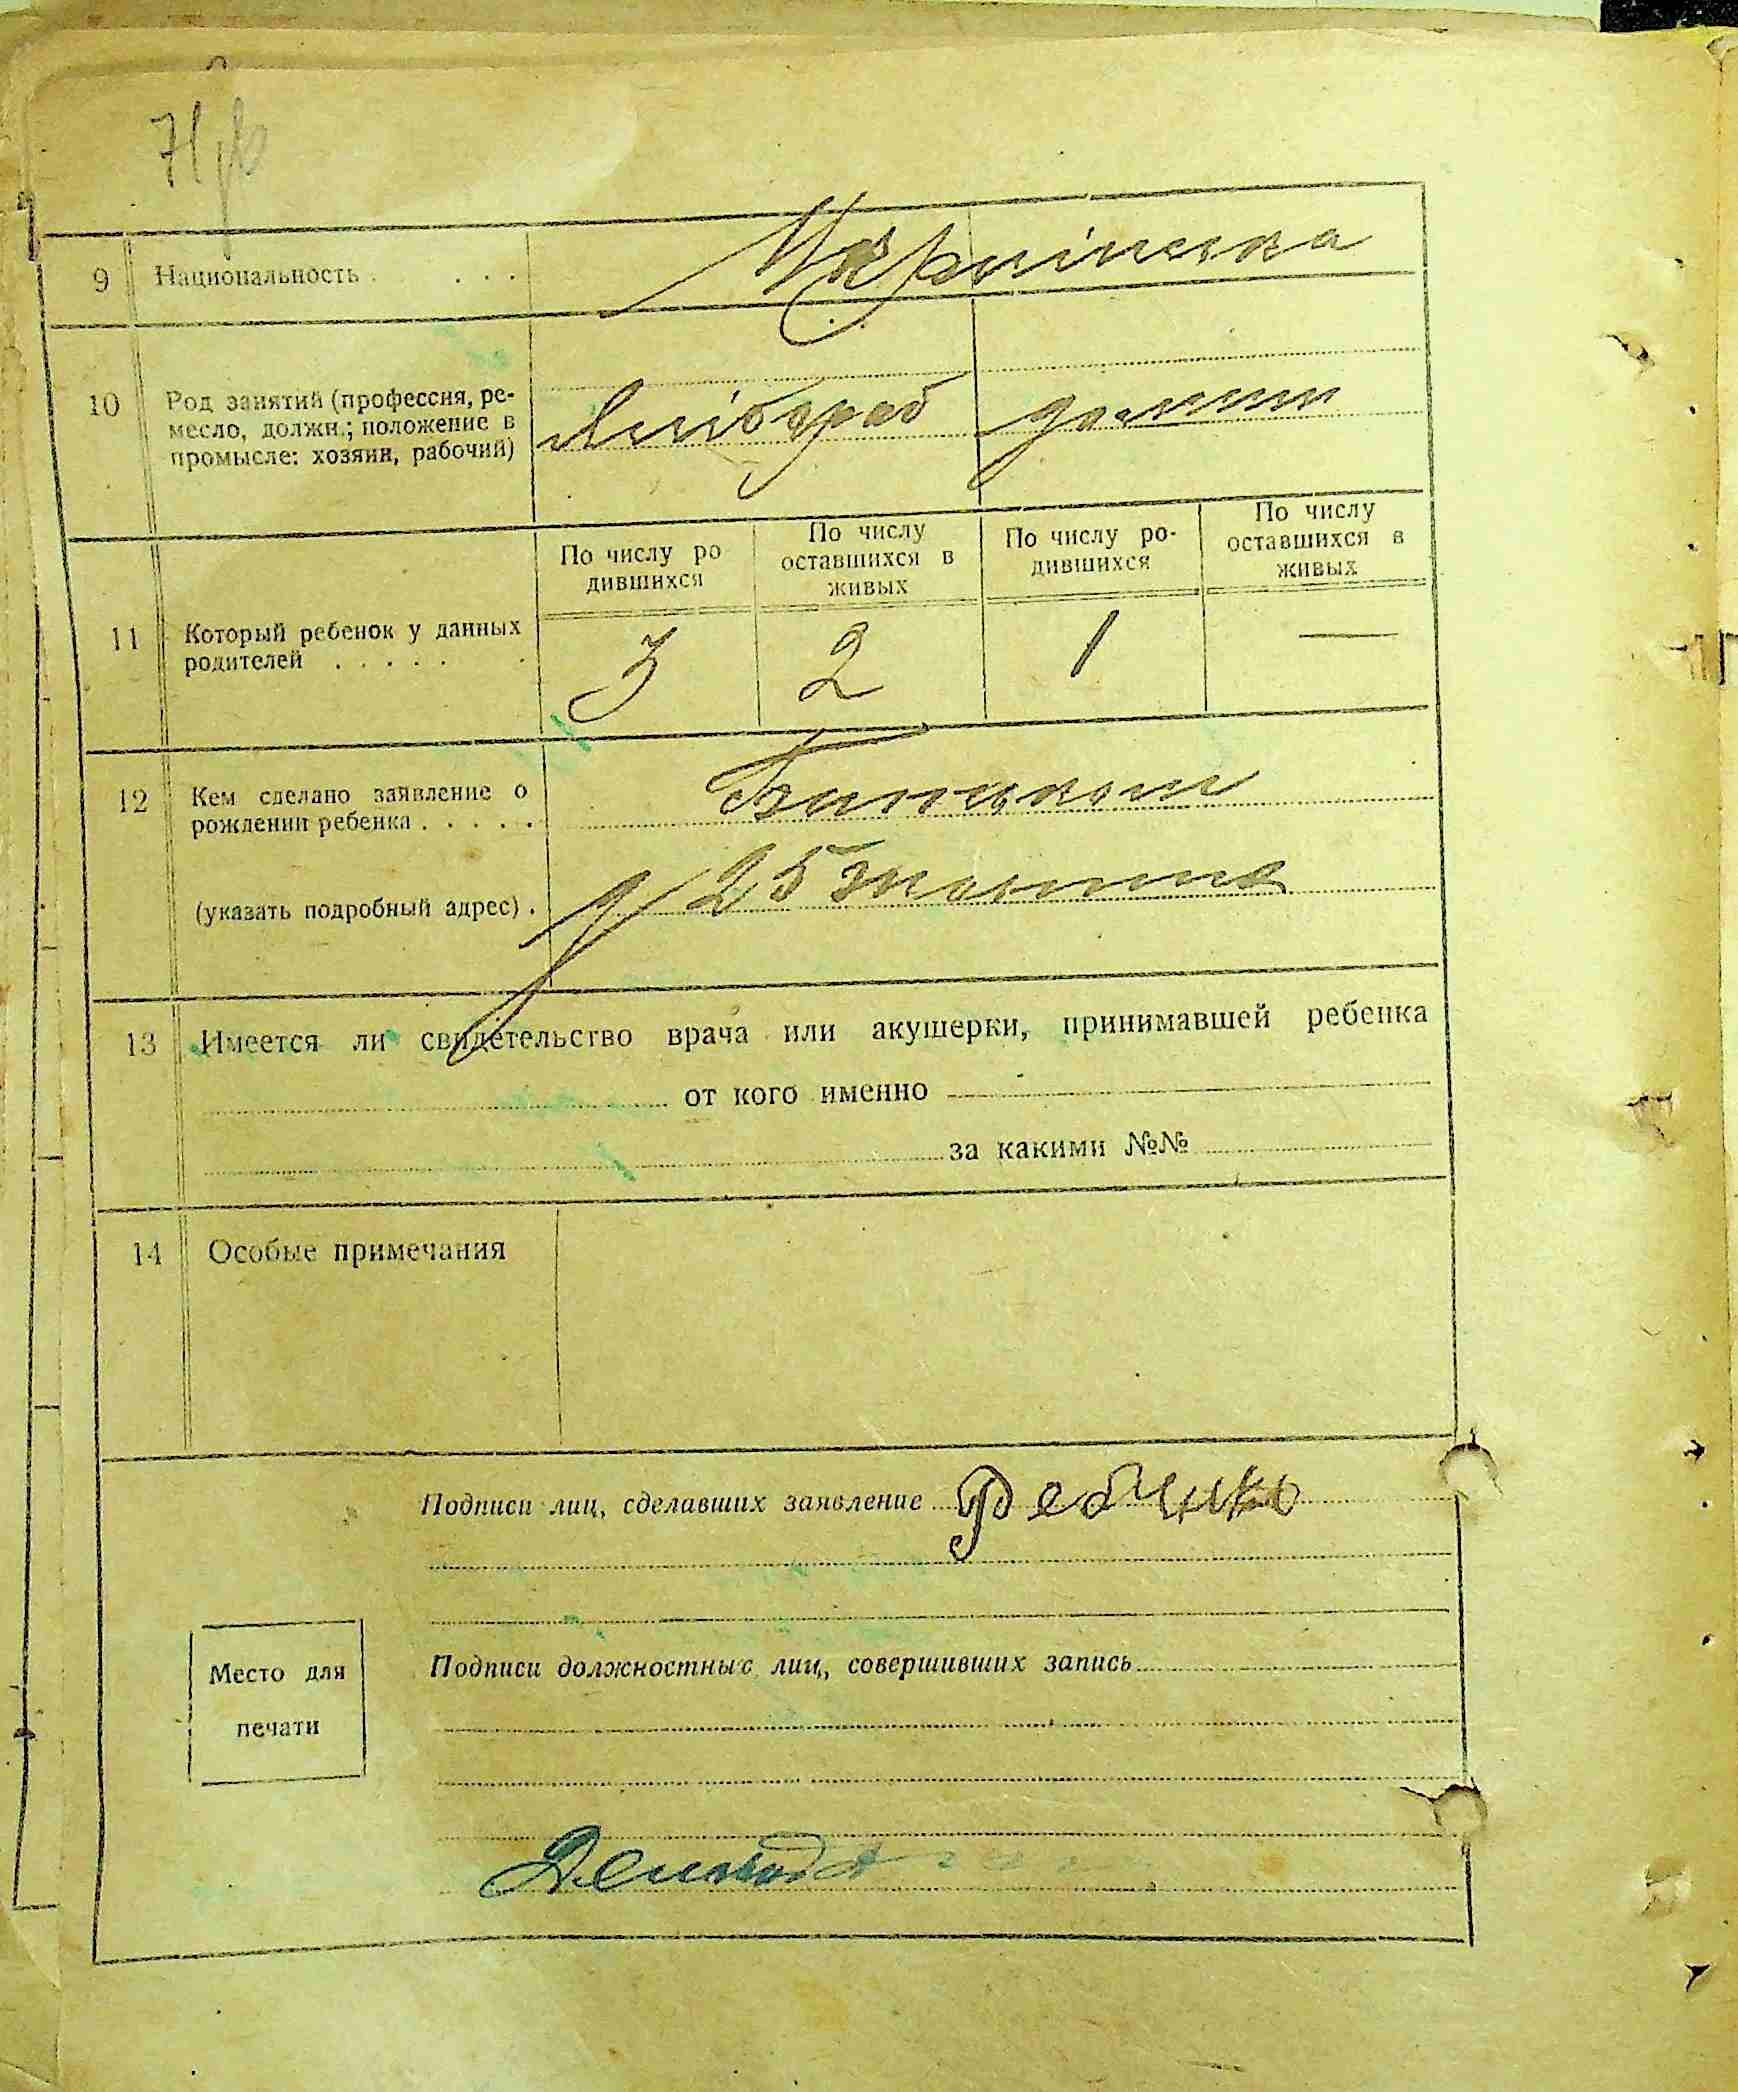 9 Национальность . . . . Українська
10 Род занятий (профессия, ре-
месло, должн.; положение в
промысле: хозяин, рабочий)
По числу ро
дившихся
По числу
оставшихся в
живых
По числу ро-
дившихся
По числу
оставшихся в
живых
11 Который ребенок у данных
родителей . . . . . .
3 2 1 —
12 Кем сделано заявление о
рождении ребенка . . . . . Батьком
(указать подробный адрес) . 25
13 Имеется ли свидетельство врача или акушерки, принимавшей ребенка
от кого именно
за какими №№
14 Особые примечания
Подписи лиц, сделавших заявление
Место для
печати
Подписи должностных лиц, совершивших запись